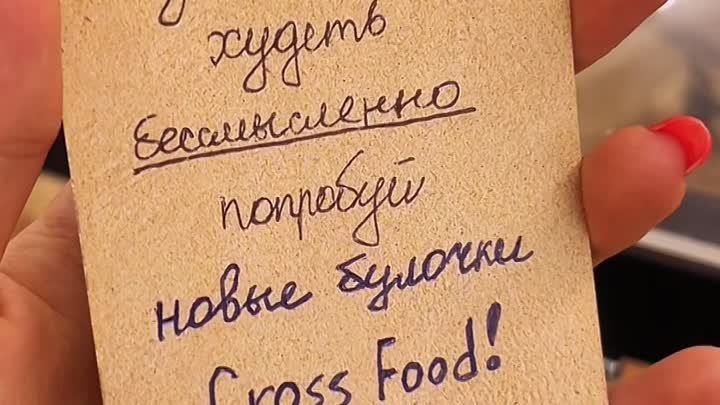 худеть
бессмысленно
попробуй
новые булочки
Cross Food!